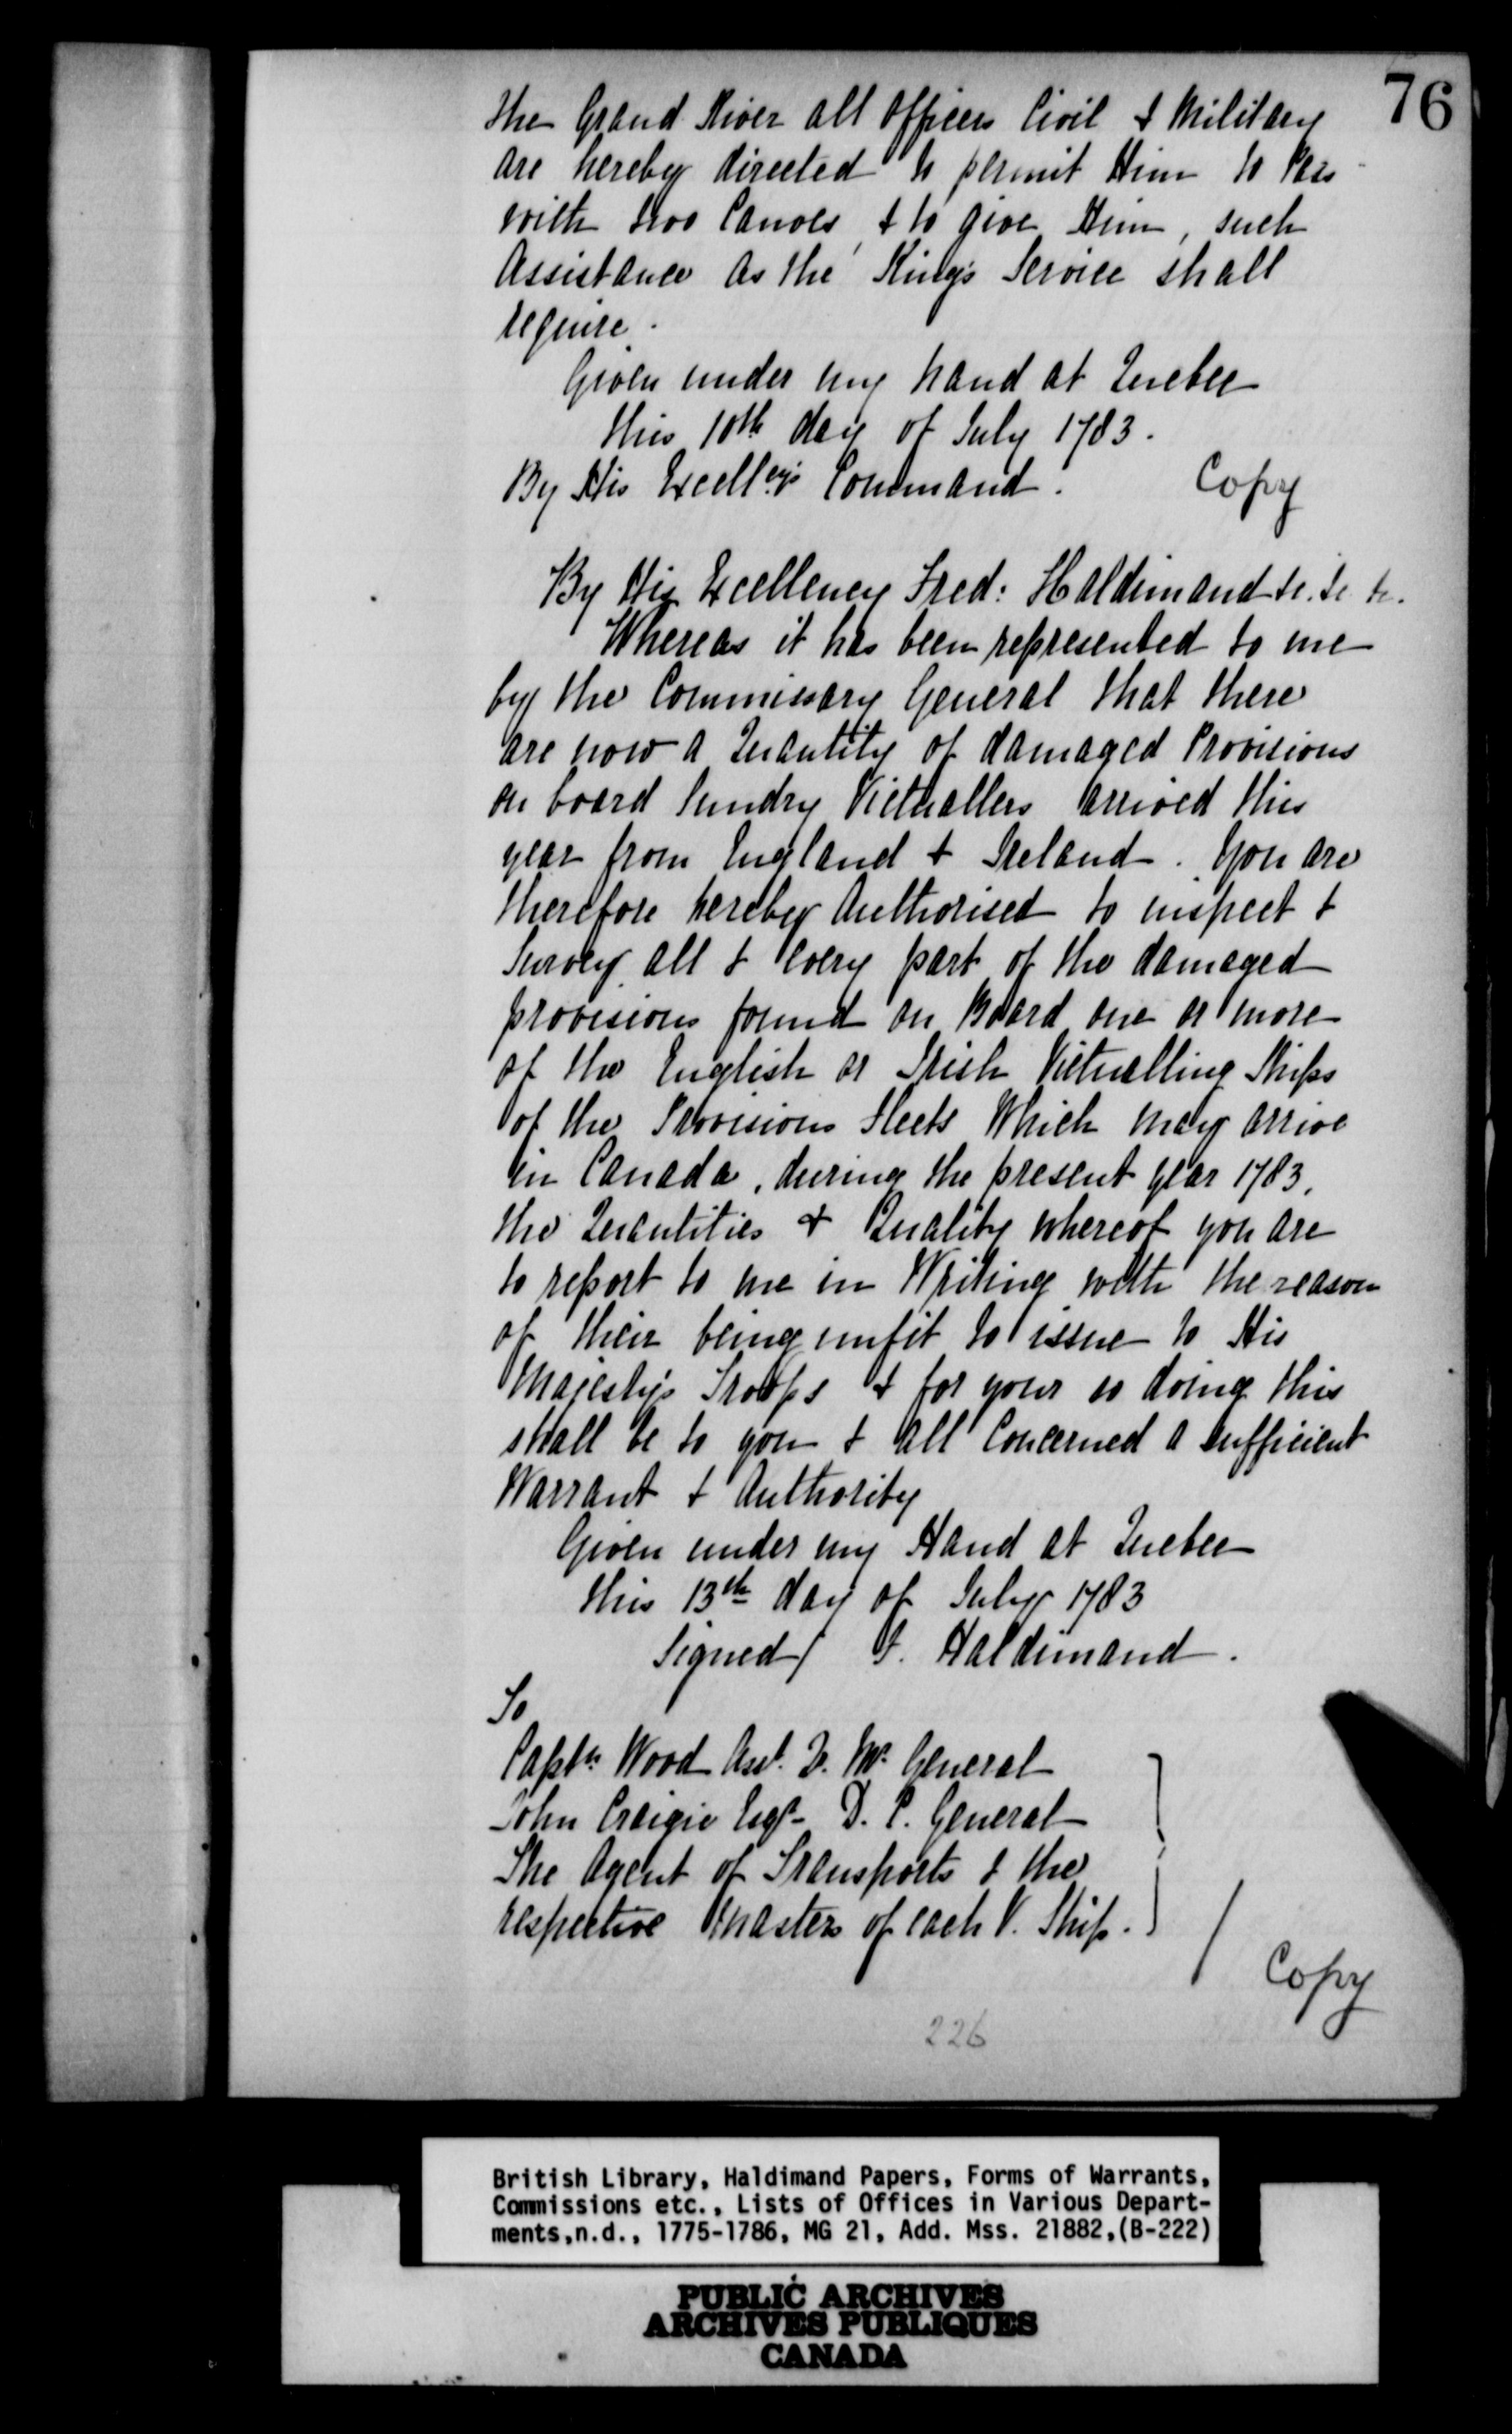 76
the Grand River all Officers Civil & Military
are hereby directed to permit Him to Pass
with two Canoes, & to give Him, such
Assistance as the King's Service shall
require.
Given under my hand at Quebec
this 10th day of July 1783.
By His Excellcy's Command.
Copy
By His Excellency Fred: Haldimand &c. &c. &c.
Whereas it has been represented to me
by the Commissary General that there
are now a Quantity of damaged Provisions
on board Sundry Victuallers arrived this
year from England & Ireland. You are
therefore hereby Authorised to inspect &
Survey all & every part of the damaged
provisions found on Board one or more
of the English or Irish Victualling Ships
of the Provisions fleets Which may arrive
in Canada, during the present year 1783,
the Quantities & Quality whereof you are
to report to me in Writing with the reason
of their being unfit to issue to His
Majesty's Troops & for your so doing this
shall be to you & all Concerned a sufficient
Warrant & Authority
Given under my Hand at Quebec
this 13th day of July 1783
Signed/ F. Haldimand.
To
Captn. Wood Asst. Q. Mr. General
John Craigie Esqr. D. C. General
The Agent of Transports & the
respective Masters of each V. Ship.
Copy
226
British Library, Haldimand Papers, Forms of Warrants,
Commissions etc., Lists of Offices in Various Depart-
ments,n.d., 1775-1786, MG 21, Add. Mss. 21882,(B-222)
PUBLIC ARCHIVES
ARCHIVES PUBLIQUES
CANADA